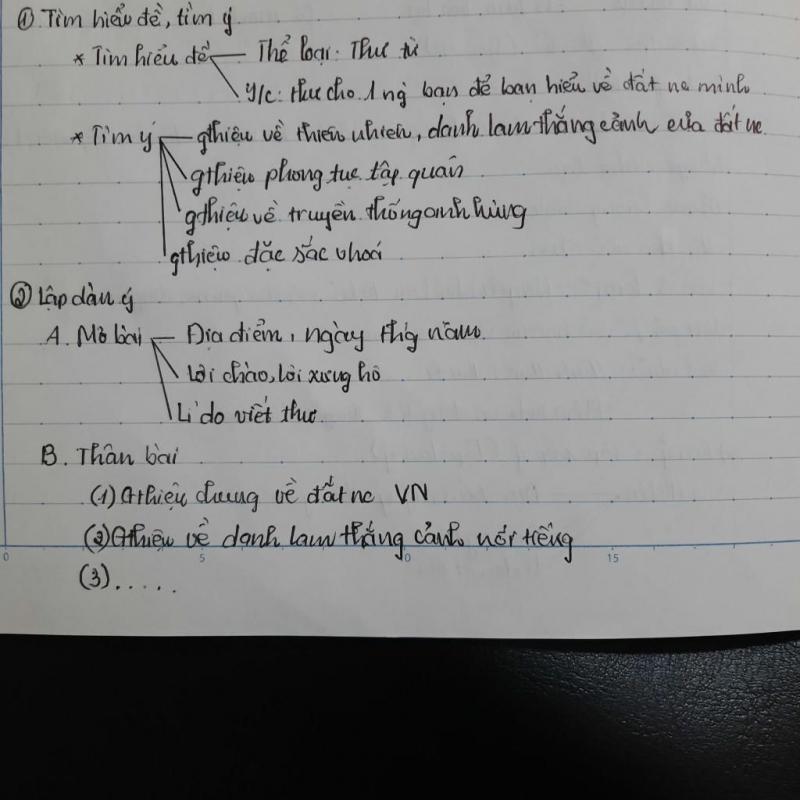 ① Tìm hiểu đề, tìm ý
* Tìm hiểu đề — Thể loại: Thư từ
Y/c: thư cho 1 ng bạn để bạn hiểu về đất nc mình
* Tìm ý — gthiệu về thiên nhiên, danh lam thắng cảnh của đất nc
gthiệu phong tục tập quán
gthiệu về truyền thống anh hùng
gthiệu đặc sắc vhoá
② Lập dàn ý
A. Mở bài — Địa điểm, ngày thg năm
Lời chào, lời xưng hô
Lí do viết thư
B. Thân bài
(1) Gthiệu chung về đất nc VN
(2) Gthiệu về danh lam thắng cảnh nổi tiếng
0 5 0 15
(3) .....